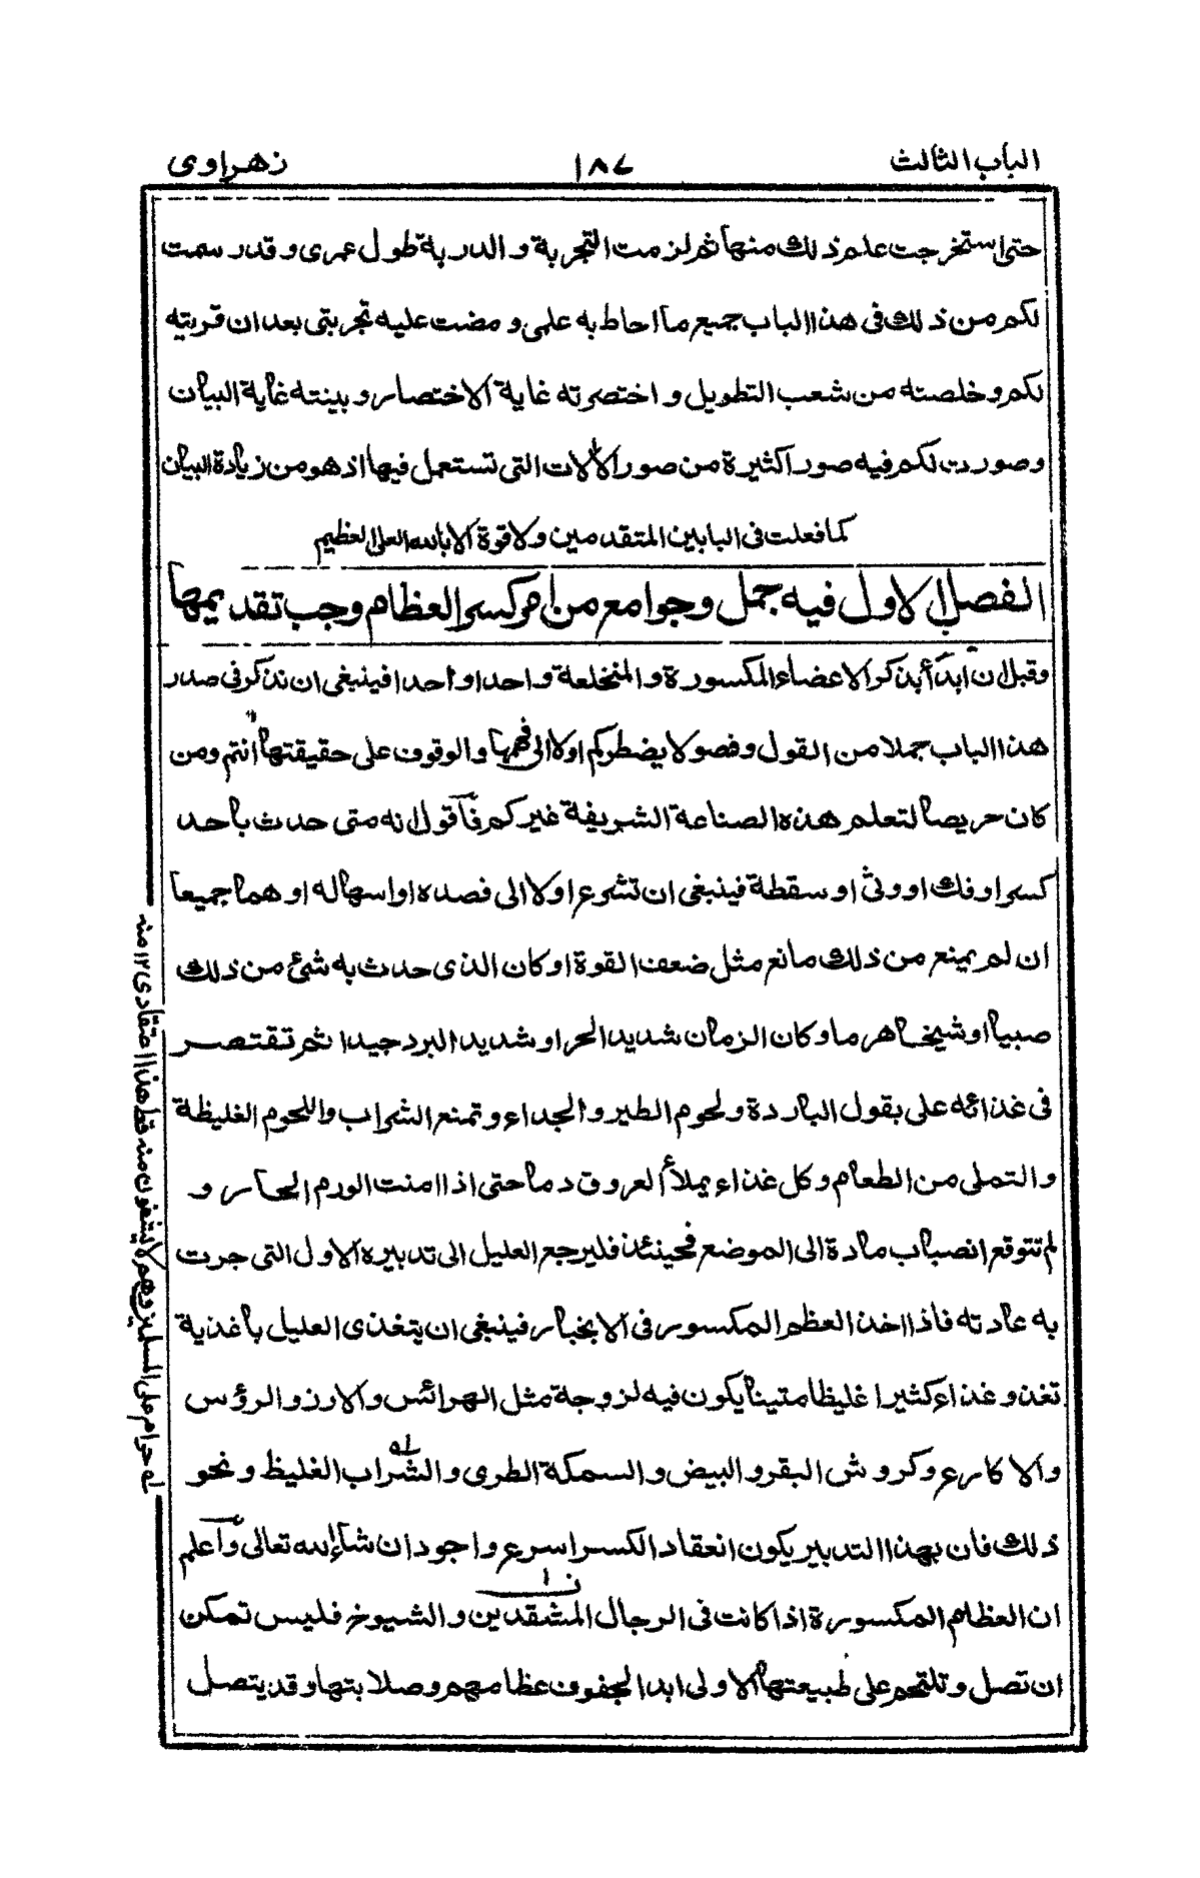 الباب الثالث ١٨٧ زهراوى
حتى استخرجت علم ذلك منها ثم لزمت التجربة و الدربة طول عمرى و قد رسمت
لكم من ذلك فى هذا الباب جميع ما احاط به علمى و مضت عليه تجربتى بعد ان قربته
لكم و خلصته من شعب التطويل و اختصرته غاية الاختصار و بينته غاية البيان
و صورت لكم فيه صورا كثيرة من صور الألات التى تستعمل فيها اذ هو من زيادة البيان
كما فعلت فى البابين المتقدمين و لا قوة الا بالله العلى العظيم
الفصل الاول فيه جمل و جوامع من امر كسر العظام و جب تقديمها
و قبل ان ابدأ بذكر الاعضاء المكسورة و المنخلعة واحدا واحدا فينبغى ان نذكر فى صدر
هذا الباب جملا من القول و فصولا يضطركم اولا الى فهمها و الوقوف على حقيقتها انتم و من
كان حريصا لتعلم هذه الصناعة الشريفة غيركم فأقول انه متى حدث باحد
كسر او فك او وثى او سقطة فينبغى ان تشرع اولا الى فصده او اسهاله او هما جميعا
ان لم يمنع من ذلك مانع مثل ضعف القوة او كان الذى حدث به شئ من ذلك
صبيا او شيخا هرما و كان الزمان شديد الحر او شديد البرد جيدا ثم تقتصر
فى غذائه على بقول الباردة و لحوم الطير و الجداء و تمنع الشراب و اللحوم الغليظة
و التملى من الطعام و كل غذاء يملأ العروق دما حتى اذا امنت الورم الحار و
لم تتوقع انصباب مادة الى الموضع فحينئذ فليرجع العليل الى تدبيره الاول التى جرت
به عادته فاذا اخذ العظم المكسور فى الانجبار فينبغى ان يتغذى العليل باغذية
تغذو غذاء كثيرا غليظا متينا يكون فيه لزوجة مثل الهرائس و الارز و الرؤس
و الا كارع و كروش البقر و البيض و السمكة الطرى و الشراب الغليظ و نحو
ذلك فان بهذا التدبير يكون انعقاد الكسر اسرع و اجود ان شاء الله تعالى و أعلم
ان العظام المكسورة اذا كانت فى الرجال المشقدين و الشيوخ فليس تمكن
ان تصل و تلتحم على طبيعتها الاولى ابدا لجفوف عظامهم و صلابتها و قد يتصل
له حرام على المسلمين و هم لا يشفون منه قط هذا اعتقادى ١٢ منه